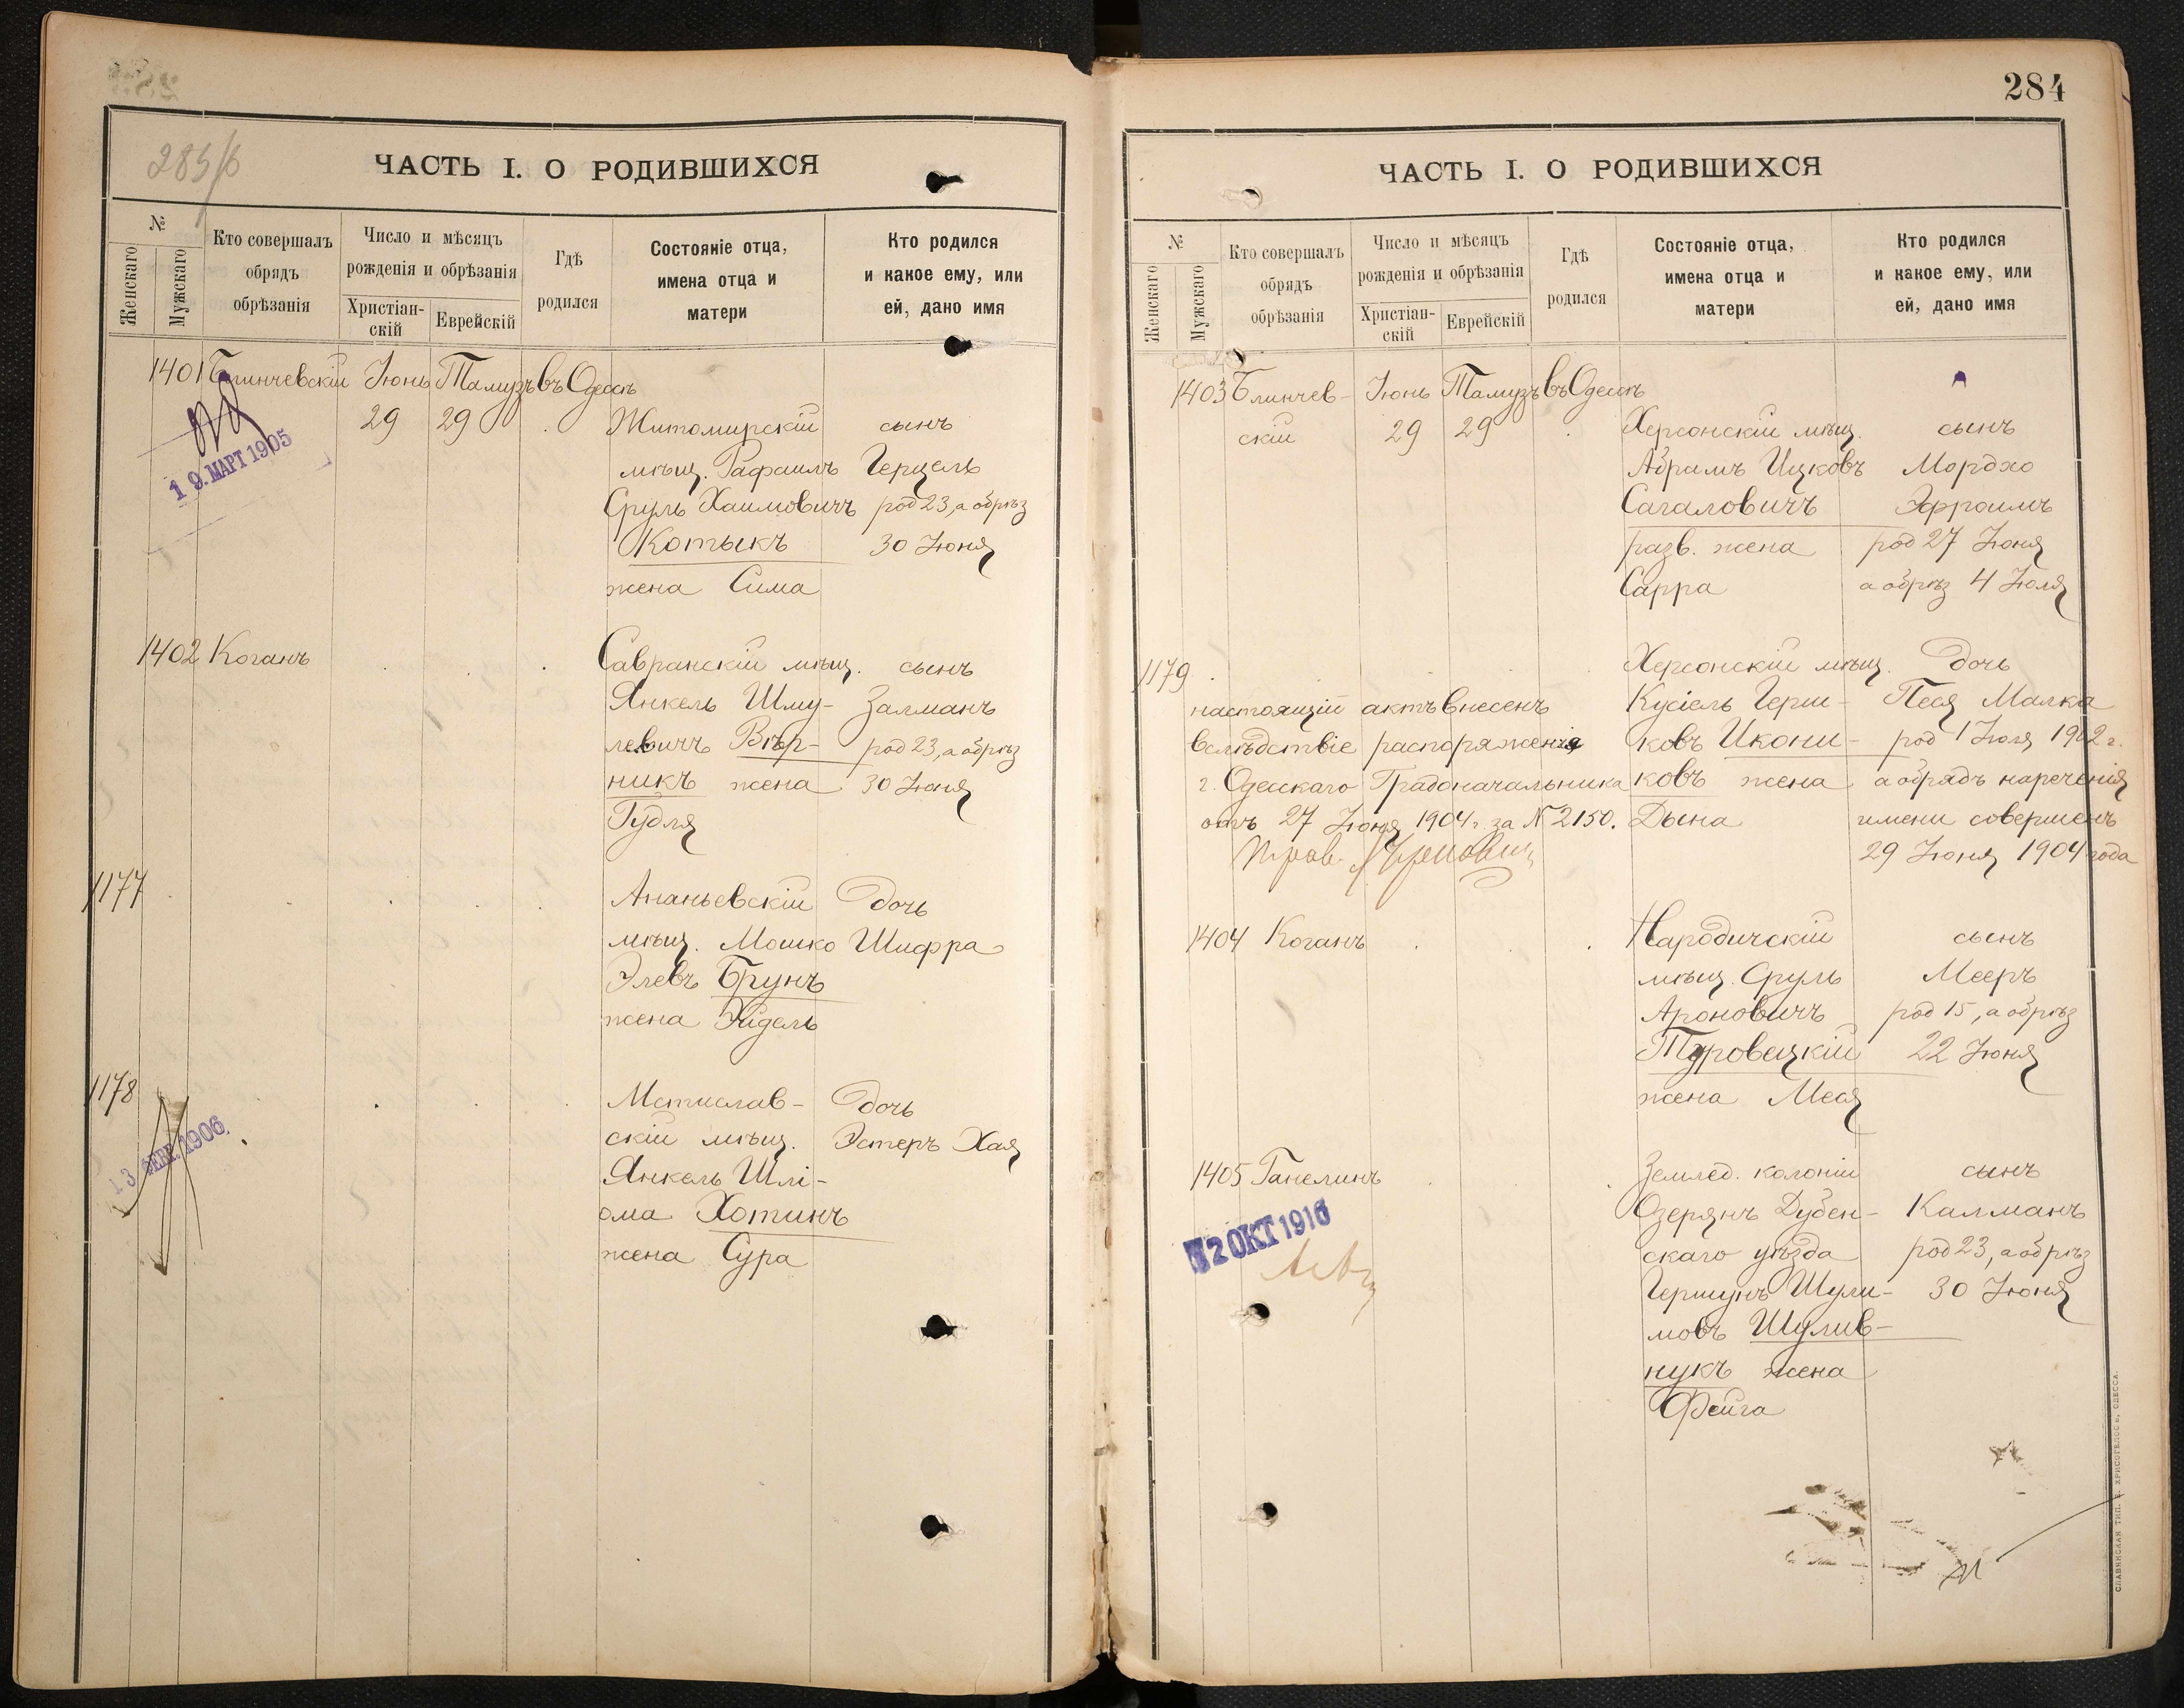 285/б
ЧАСТЬ I. О РОДИВШИХСЯ
№
Женскаго
Мужскаго
Кто совершалъ
обрядъ
обрѣзанія
Число и мѣсяцъ
рожденія и обрѣзанія
Христіан-
скій
Еврейскій
Гдѣ
родился
Состояніе отца,
имена отца и
матери
Кто родился
и какое ему, или
ей, дано имя
1401 Блинчевскій Іюнь Тамузъ въ Одессѣ
29 29 Житомирскій сынъ
19. МАРТ 1905
мѣщ. Рафаилъ Герцель
Сруль Хаимовичъ род 23, а обрѣз
Котыкъ 30 Іюня
жена Сима
1402 Коганъ Савранскій мѣщ. сынъ
Янкель Шму- Залманъ
левичъ Вѣр- род 23, а обрѣз
никъ жена 30 Іюня
Гудля
1177 Ананьевскій дочь
мѣщ. Мошко Шифра
Элевъ Брунъ
жена Эйдель
1178 Мстислав- дочь
13 ФЕВР. 1906
скій мѣщ. Эстеръ Хая
Янкель Шлі-
ома Хотинъ
жена Сура
284
ЧАСТЬ I. О РОДИВШИХСЯ
№
Женскаго
Мужскаго
Кто совершалъ
обрядъ
обрѣзанія
Число и мѣсяцъ
рожденія и обрѣзанія
Христіан-
скій
Еврейскій
Гдѣ
родился
Состояніе отца,
имена отца и
матери
Кто родился
и какое ему, или
ей, дано имя
1403 Блинчев- Іюнь Тамузъ въ Одессѣ
скій 29 29 Херсонскій мѣщ. сынъ
Абрамъ Ицковъ Мордхо
Сагаловичъ Эфроимъ
разв. жена род 27 Іюня
Сарра а обрѣз 4 Іюля
1179 Херсонскій мѣщ. дочь
настоящій актъ внесенъ Кусіель Герш- Песя Малка
вслѣдствіе распоряженія ковъ Икони- род 1 Іюля 1902 г.
г. Одесскаго Градоначальника ковъ жена а обрядъ нареченія
отъ 27 Іюня 1904 г. за № 2150. Дына имени совершенъ
29 Іюня 1904 года
1404 Коганъ Народичскій сынъ
мѣщ. Сруль Мееръ
Ароновичъ род 15, а обрѣз
Туровецкій 22 Іюня
жена Меся
1405 Ганелинъ Землед. колоніи сынъ
Озерянъ Дубен- Калманъ
2 ОКТ 1916
скаго уѣзда род 23, а обрѣз
Гершунъ Шули- 30 Іюня
мовъ Шулив-
нукъ жена
Фейга
СЛАВЯНСКАЯ ТИП. Е. ХРИСОГЕЛОСЪ, ОДЕССА.